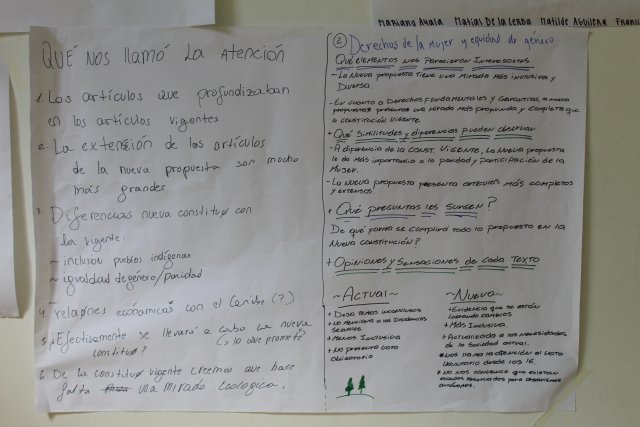 Mariano Ayala Matias De la Cerda Matilde Aguilera
QUÉ NOS llamó La Atención
1. Los artículos que profundizaban
en los artículos vigentes
2. La extensión de los artículos
de la nueva propuesta son mucho
más grandes
3. Diferencias nueva constituø con
la vigente:
~ inclusión pueblos indígenas
~ igualdad de género/paridad
4. relaciones económicas con el Caribe (?)
5. ¿Efectivamente se llevará a cabo la nueva
constituø? (lo que promete)
6. De la constituø vigente creemos que hace
falta una mirada Ecologica.
② Derechos de la Mujer y equidad de género
Qué elementos nos Parecieron Interesantes
- La Nueva propuesta tiene una mirada más inclusiva y
Diversa.
- En cuanto a Derechos fundamentales y Garantías, la nueva
propuesta presenta una mirada más profunda y completa que
la constitución vigente
+ Qué Similitudes y diferencias pueden observar
- A diferencia de la Const. Vigente, La Nueva propuesta
le da más importancia a la paridad y participación de la
Mujer.
- La Nueva propuesta presenta artículos más completos
y extensos.
+ Qué preguntas les surgen?
De qué forma se cumplirá todo lo propuesto en la
Nueva constitución?
+ Opiniones y Sensaciones de cada Texto
~ Actual ~
+ Deja temas inconclusos
+ No menciona a las Disidencias
Sexuales
+ Menos Inclusiva
+ No presenta voto
Obligatorio
~ Nueva ~
+ Evidencia que se están
logrando cambios
+ Más Inclusiva.
+ Actualizada a las necesidades
de la sociedad actual.
* Nos llama la atención el voto
voluntario desde los 16.
* No nos convence que existan
escaños reservados para organismos
autónomos.